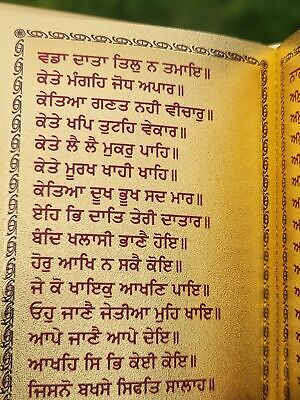 ਵਡਾ ਦਾਤਾ ਤਿਲੁ ਨ ਤਮਾਇ॥
ਕੇਤੇ ਮੰਗਹਿ ਜੋਧ ਅਪਾਰ॥
ਕੇਤਿਆ ਗਣਤ ਨਹੀ ਵੀਚਾਰੁ॥
ਕੇਤੇ ਖਪਿ ਤੁਟਹਿ ਵੇਕਾਰ॥
ਕੇਤੇ ਲੈ ਲੈ ਮੁਕਰੁ ਪਾਹਿ॥
ਕੇਤੇ ਮੂਰਖ ਖਾਹੀ ਖਾਹਿ॥
ਕੇਤਿਆ ਦੂਖ ਭੂਖ ਸਦ ਮਾਰ॥
ਏਹਿ ਭਿ ਦਾਤਿ ਤੇਰੀ ਦਾਤਾਰ॥
ਬੰਦਿ ਖਲਾਸੀ ਭਾਣੈ ਹੋਇ॥
ਹੋਰੁ ਆਖਿ ਨ ਸਕੈ ਕੋਇ॥
ਜੇ ਕੋ ਖਾਇਕੁ ਆਖਣਿ ਪਾਇ॥
ਓਹੁ ਜਾਣੈ ਜੇਤੀਆ ਮੁਹਿ ਖਾਇ॥
ਆਪੇ ਜਾਣੈ ਆਪੇ ਦੇਇ॥
ਆਖਹਿ ਸਿ ਭਿ ਕੇਈ ਕੇਇ॥
ਜਿਸਨੋ ਬਖਸੇ ਸਿਫਤਿ ਸਾਲਾਹ॥